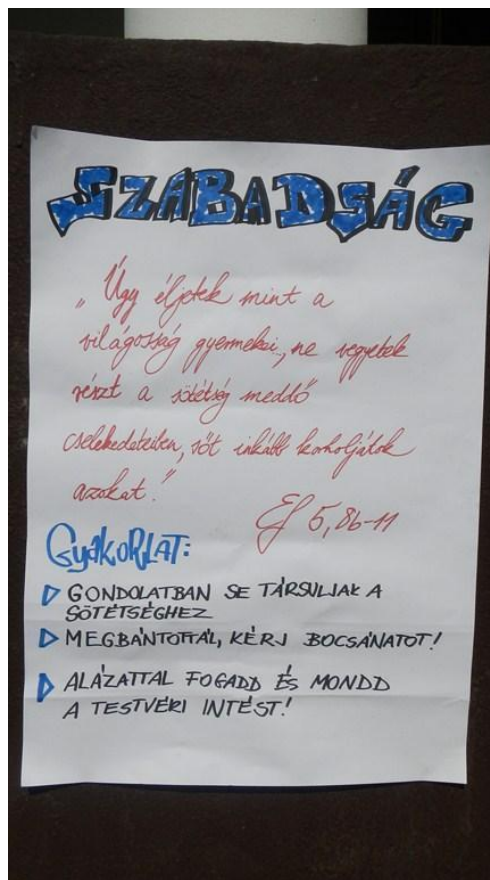 SZABADSÁG
„Úgy éljetek mint a
világosság gyermekei, ne vegyetek
részt a sötétség meddő
cselekedeteiben, sőt inkább korholjátok
azokat."
Ef 5,8b-11
GYAKORLAT:
GONDOLATBAN SE TÁRSULJAK A
SÖTÉTSÉGHEZ
MEGBÁNTOTTÁL, KÉRJ BOCSÁNATOT!
ALÁZATTAL FOGADD ÉS MONDD
A TESTVÉRI INTÉST!